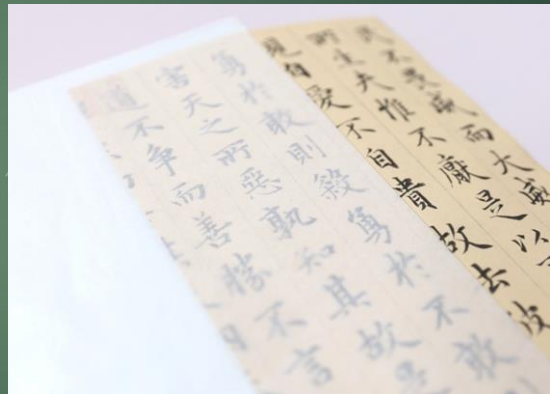 民不畏威而大威
所生夫惟不厭是以
見自愛不自貴故去彼
勇於敢則殺勇於不敢
害天之所惡孰知其故是
道不争而善勝不言